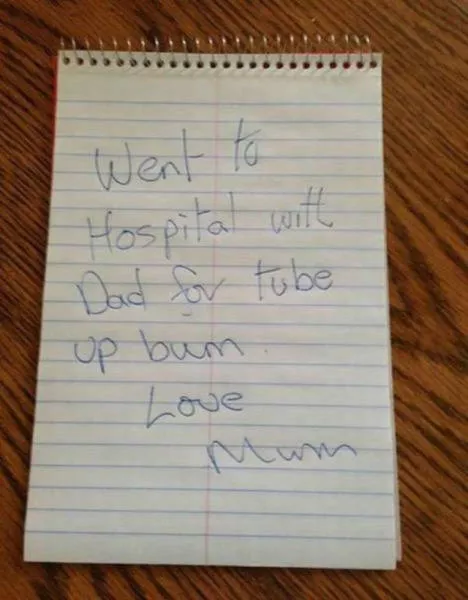 Went to
Hospital with
Dad for tube
up bum.
Love
Mum